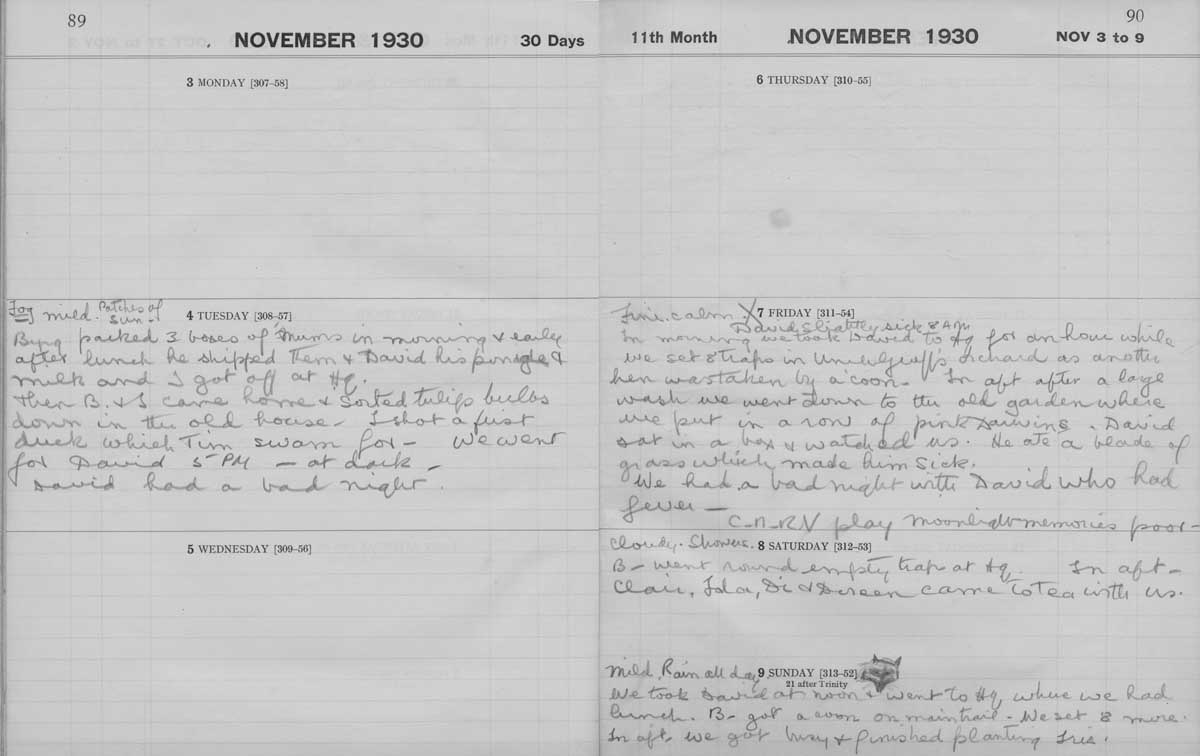 89
NOVEMBER 1930
30 Days
3 MONDAY [307–58]
Fog mild. Patches of sun.
4 TUESDAY [308–57]
Byng packed 3 boxes of 'Mums in morning & early
after lunch he shipped them & David his porridge &
milk and I got off at Hq.
Then B. & I came home & sorted tulip bulbs
down in the old house - I shot a first
duck which Tim swam for - We went
for David 5 PM - at dark -
David had a bad night.
5 WEDNESDAY [309–56]
90
11th Month
NOVEMBER 1930
NOV 3 to 9
6 THURSDAY [310–55]
Fine. calm. X
7 FRIDAY [311–54]
David Slightly sick 8 AM
In morning we took David to Hq for an hour while
we set 8 traps in Orchard as another
hen was taken by a 'coon - In aft after a large
wash we went down to the old garden where
we put in a row of pink Darwins. David
sat in a box & watched us. He ate a blade of
grass which made him sick.
We had a bad night with David who had
fever -
C.N.R.V play moonlight memories poor -
Cloudy. Showers.
8 SATURDAY [312–53]
B - went round empty traps at Hq. In aft -
Clair, Ida, Di & Doreen came to Tea with us.
mild, Rain all day
9 SUNDAY [313–52]
21 after Trinity
We took David at noon & went to Hq where we had
lunch. B - got a coon on main trail - We set 8 more.
In aft. we got busy & finished planting Iris.